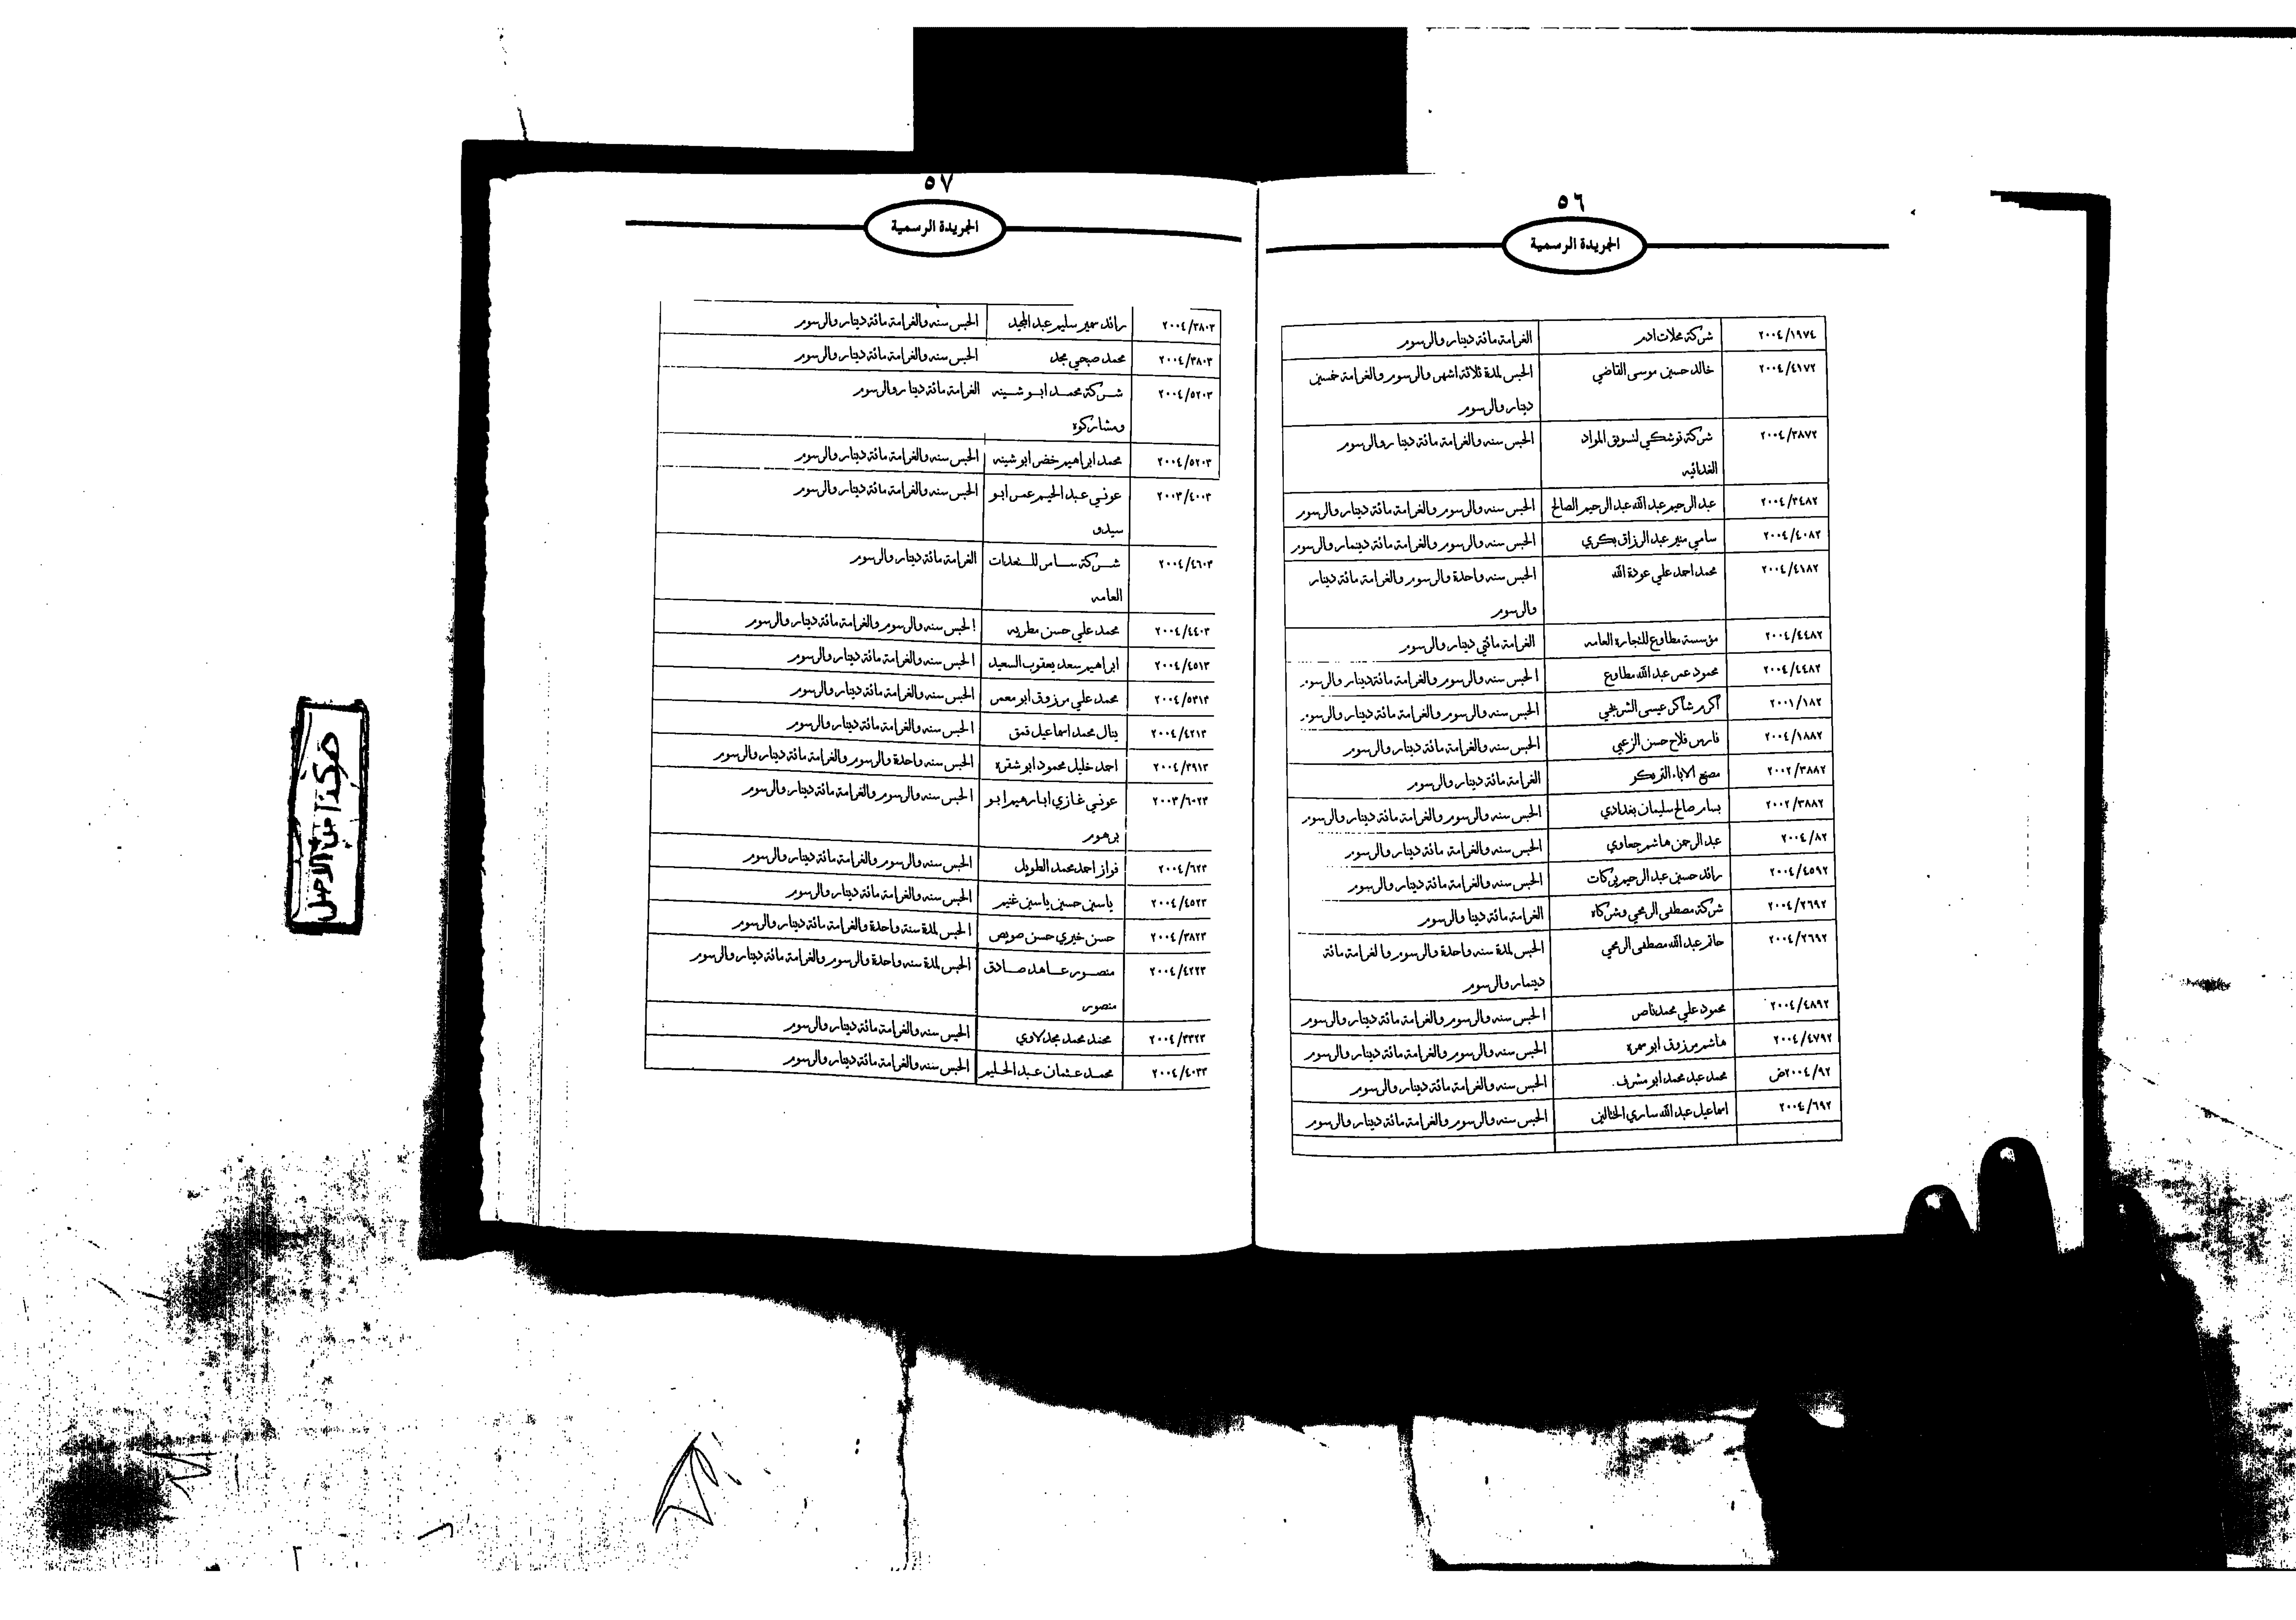 ٥٦
الجريدة الرسمية
٢٠٠٤/١٩٧٤ شركة محلات ادم الغرامة مائة دينار والرسوم
٢٠٠٤/٤١٧٢ خالد حسين موسى القاضي الحبس لمدة ثلاثة اشهر والرسوم والغرامة خمسين
دينار والرسوم
٢٠٠٤/٣٨٧٢ شركة توشكي لتسويق المواد الحبس سنه والغرامة مائة دينا روالرسوم
الغدائيه
٢٠٠٤/٣٤٨٢ عبد الرحيم عبد الله عبد الرحيم الصالح الحبس سنه والرسوم والغرامة مائة دينار والرسوم
٢٠٠٤/٤٠٨٢ سامي منير عبد الرزاق بكري الحبس سنه والرسوم والغرامة مائة دينمار والرسوم
٢٠٠٤/٤١٨٢ محمد احمد علي عودة الله الحبس سنه واحدة والرسوم والغرامة مائة دينار
والرسوم
٢٠٠٤/٤٤٨٢ مؤسسة مطاوع للتجارة العامه الغرامة مائتي دينار والرسوم
٢٠٠٤/٤٤٨٢ محمود عمر عبد الله مطاوع الحبس سنه والرسوم والغرامة مائة دينار والرسوم
٢٠٠١/١٨٢ أكرم شاكر عيسى الشريخي الحبس سنه والرسوم والغرامة مائة دينار والرسوم
٢٠٠٤/١٨٨٢ فارس فلاح حسن الزعبي الحبس سنه والغرامة مائة دينار والرسوم
٢٠٠٢/٣٨٨٢ مصنع الاباء التريكو الغرامة مائة دينار والرسوم
٢٠٠٢/٣٨٨٢ بسام صالح سليمان بغدادي الحبس سنه والرسوم والغرامة مائة دينار والرسوم
٢٠٠٤/٨٢ عبد الرحمن هاشم جعاوي الحبس سنه والغرامة مائة دينار والرسوم
٢٠٠٤/٤٥٩٢ رائد حسين عبد الرحيم بركات الحبس سنه والغرامة مائة دينار والرسوم
٢٠٠٤/٢٦٩٢ شركة مصطفى الرمحي وشركاه الغرامة مائة دينا والرسوم
٢٠٠٤/٢٦٩٢ حاتم عبد الله مصطفى الرمحي الحبس لمدة سنه واحدة والرسوم والغرامة مائة
دينمار والرسوم
٢٠٠٤/٤٨٩٢ محمود علي محمد ناصر الحبس سنه والرسوم والغرامة مائة دينار والرسوم
٢٠٠٤/٤٧٩٢ هاشم مرزوق ابو سمره الحبس سنه والرسوم والغرامة مائة دينار والرسوم
٢٠٠٤/٩٢ض محمد عبد محمد ابو مشرف. الحبس سنه والغرامة مائة دينار والرسوم
٢٠٠٤/٦٩٢ اسماعيل عبد الله ساري الختالين الحبس سنه والرسوم والغرامة مائة دينار والرسوم
٥٧
الجريدة الرسمية
٢٠٠٤/٣٨٠٣ رائد سمير سليم عبد المجيد الحبس سنه والغرامة مائة دينار والرسوم
٢٠٠٤/٣٨٠٣ محمد صبحي مجد الحبس سنه والغرامة مائة دينار والرسوم
٢٠٠٤/٥٢٠٣ شركة محمد ابو شينه الغرامة مائة دينا روالرسوم
ومشاركوه
٢٠٠٤/٥٢٠٣ محمد ابراهيم خضر ابو شينه الحبس سنه والغرامة مائة دينار والرسوم
٢٠٠٣/٤٠٠٣ عوني عبد الحيم عمر ابو الحبس سنه والغرامة مائة دينار والرسوم
سيدو
٢٠٠٤/٤٦٠٣ شركة سامر للتعدات الغرامة مائة دينار والرسوم
العامه
٢٠٠٤/٤٤٠٣ محمد علي حسن مطريه الحبس سنه والرسوم والغرامة مائة دينار والرسوم
٢٠٠٤/٤٥١٣ ابراهيم سعد يعقوب السعيد الحبس سنه والغرامة مائة دينار والرسوم
٢٠٠٤/٥٣١٣ محمد علي مرزوق ابو معمر الحبس سنه والغرامة مائة دينار والرسوم
٢٠٠٤/٤٢١٣ ينال محمد اسماعيل قمق الحبس سنه والغرامة مائة دينار والرسوم
٢٠٠٤/٣٩١٣ احمد خليل محمود ابو شقره الحبس سنه واحدة والرسوم والغرامة مائة دينار والرسوم
٢٠٠٣/٦٠٢٣ عوني غازي ابارهيم ابو الحبس سنه والرسوم والغرامة مائة دينار والرسوم
برهوم
٢٠٠٤/٦٢٣ فواز احمد محمد الطويل الحبس سنه والرسوم والغرامة مائة دينار والرسوم
٢٠٠٤/٤٥٢٣ ياسين حسين ياسين غنيم الحبس سنه والغرامة مائة دينار والرسوم
٢٠٠٤/٣٨٢٣ حسن خيري حسن صويص الحبس لمدة سنة واحدة والغرامة مائة دينار والرسوم
٢٠٠٤/٤٢٢٣ منصور عاهد صادق الحبس لمدة سنه واحدة والرسوم والغرامة مائة دينار والرسوم
منصور
٢٠٠٤/٣٣٢٣ محند محمد مجدلاوي الحبس سنه والغرامة مائة دينار والرسوم
٢٠٠٤/٤٠٣٣ محمد عثمان عبد الحليم الحبس سنه والغرامة مائة دينار والرسوم
هكذا من الاصل